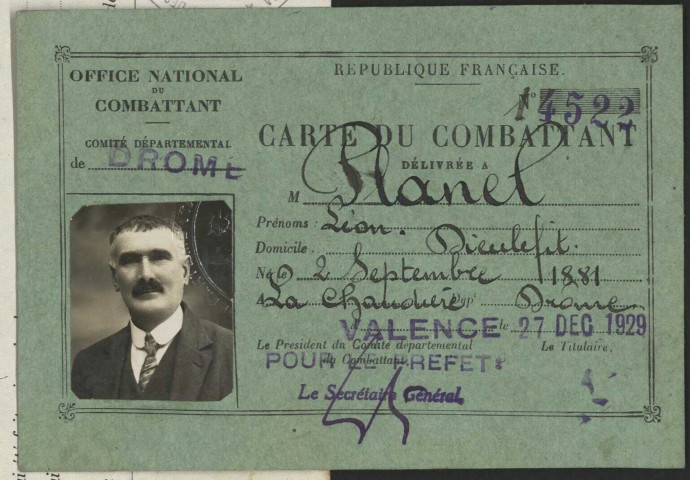 OFFICE NATIONAL
DU
COMBATTANT
COMITÉ DÉPARTEMENTAL
de DROME
REPUBLIQUE FRANÇAISE.
N° 14522
CARTE DU COMBATTANT
DÉLIVRÉE A
M Planel
Prénoms : Léon.
Domicile Dieulefit.
Né le 2 Septembre 1881
A La Chaudière Dépt Drome
VALENCE le 27 DEC 1929
Le Président du Comité départemental
du Combattant,
Le Titulaire,
POUR LE PREFET:
Le Secrétaire Général,